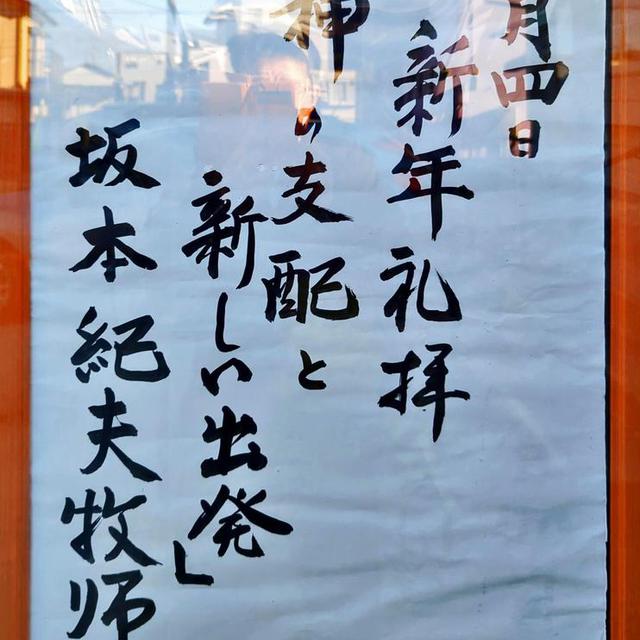 月四日
新年礼拝
神の支配と
新しい出発」
坂本紀夫牧師